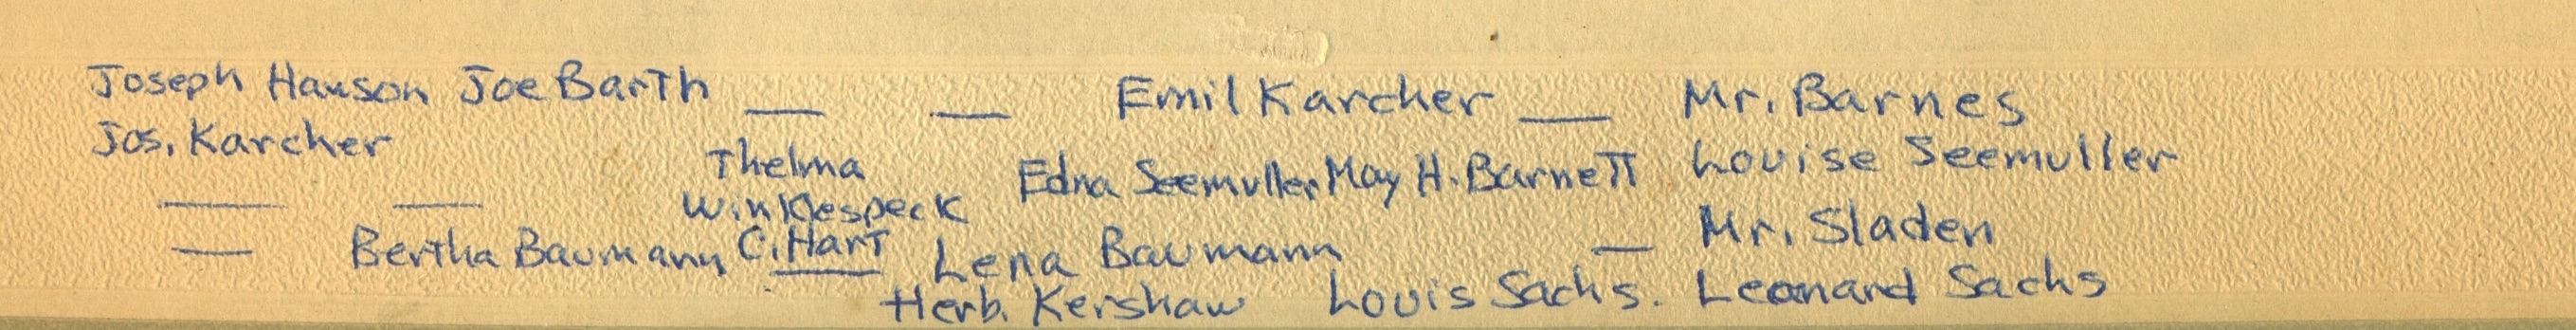 Joseph Hauson Joe Barth __ __ Emil Karcher __ Mr. Barnes
Jos. Karcher
Thelma Edna Seemuller May H. Barnett Louise Seemuller
__ __ Winklespeck
__ Bertha Baumann C. Hart Lena Baumann __ Mr. Sladen
Herb. Kershaw Louis Sachs. Leonard Sachs